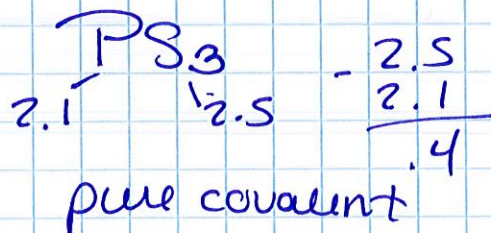 PS3
2.1 2.5
- 2.5
2.1
.4
pure covalent